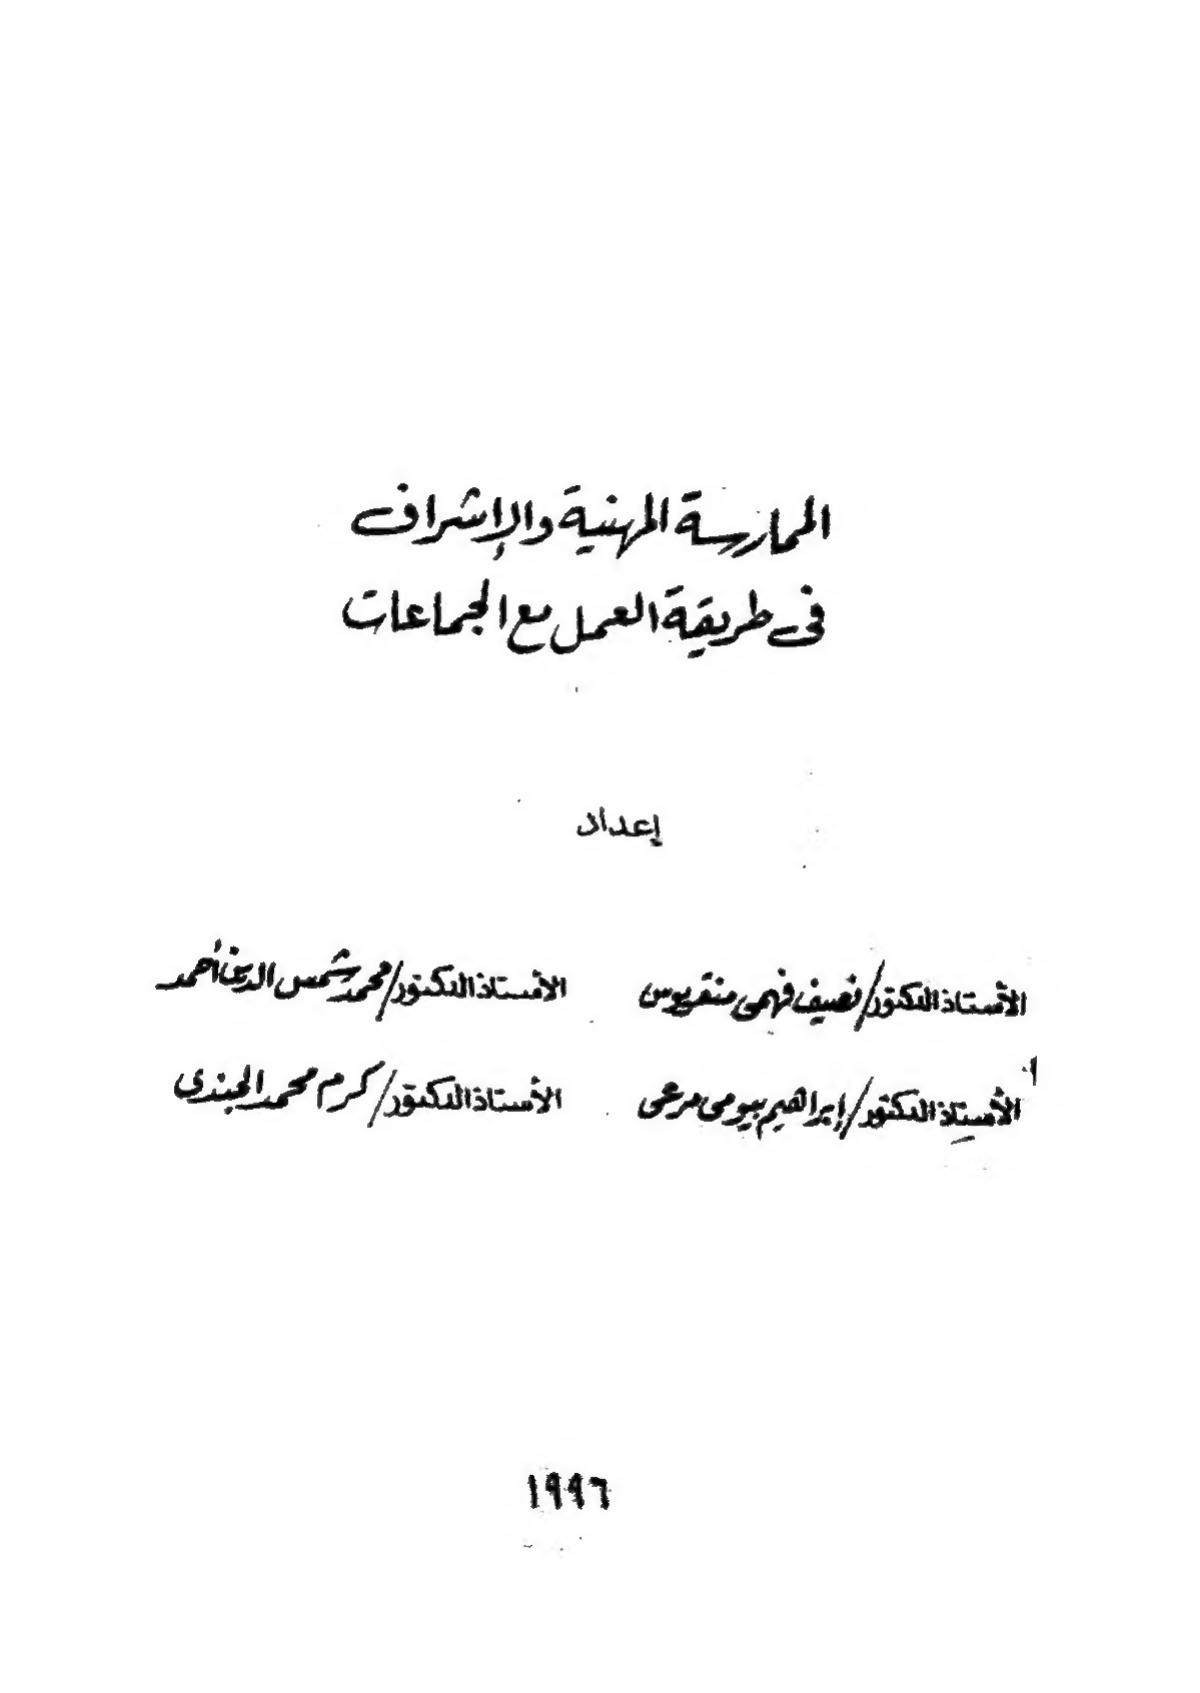 الممارسة المهنية والإشراف
فى طريقة العمل مع الجماعات
إعداد
الأستاذ الدكتور/نصيف فهمى منقريوس
الأستاذ الدكتور/محمد شمس الدين أحمد
الأستاذ الدكتور/إبراهيم بيومى مرعى
الأستاذ الدكتور/كرم محمد الجندى
١٩٩٦